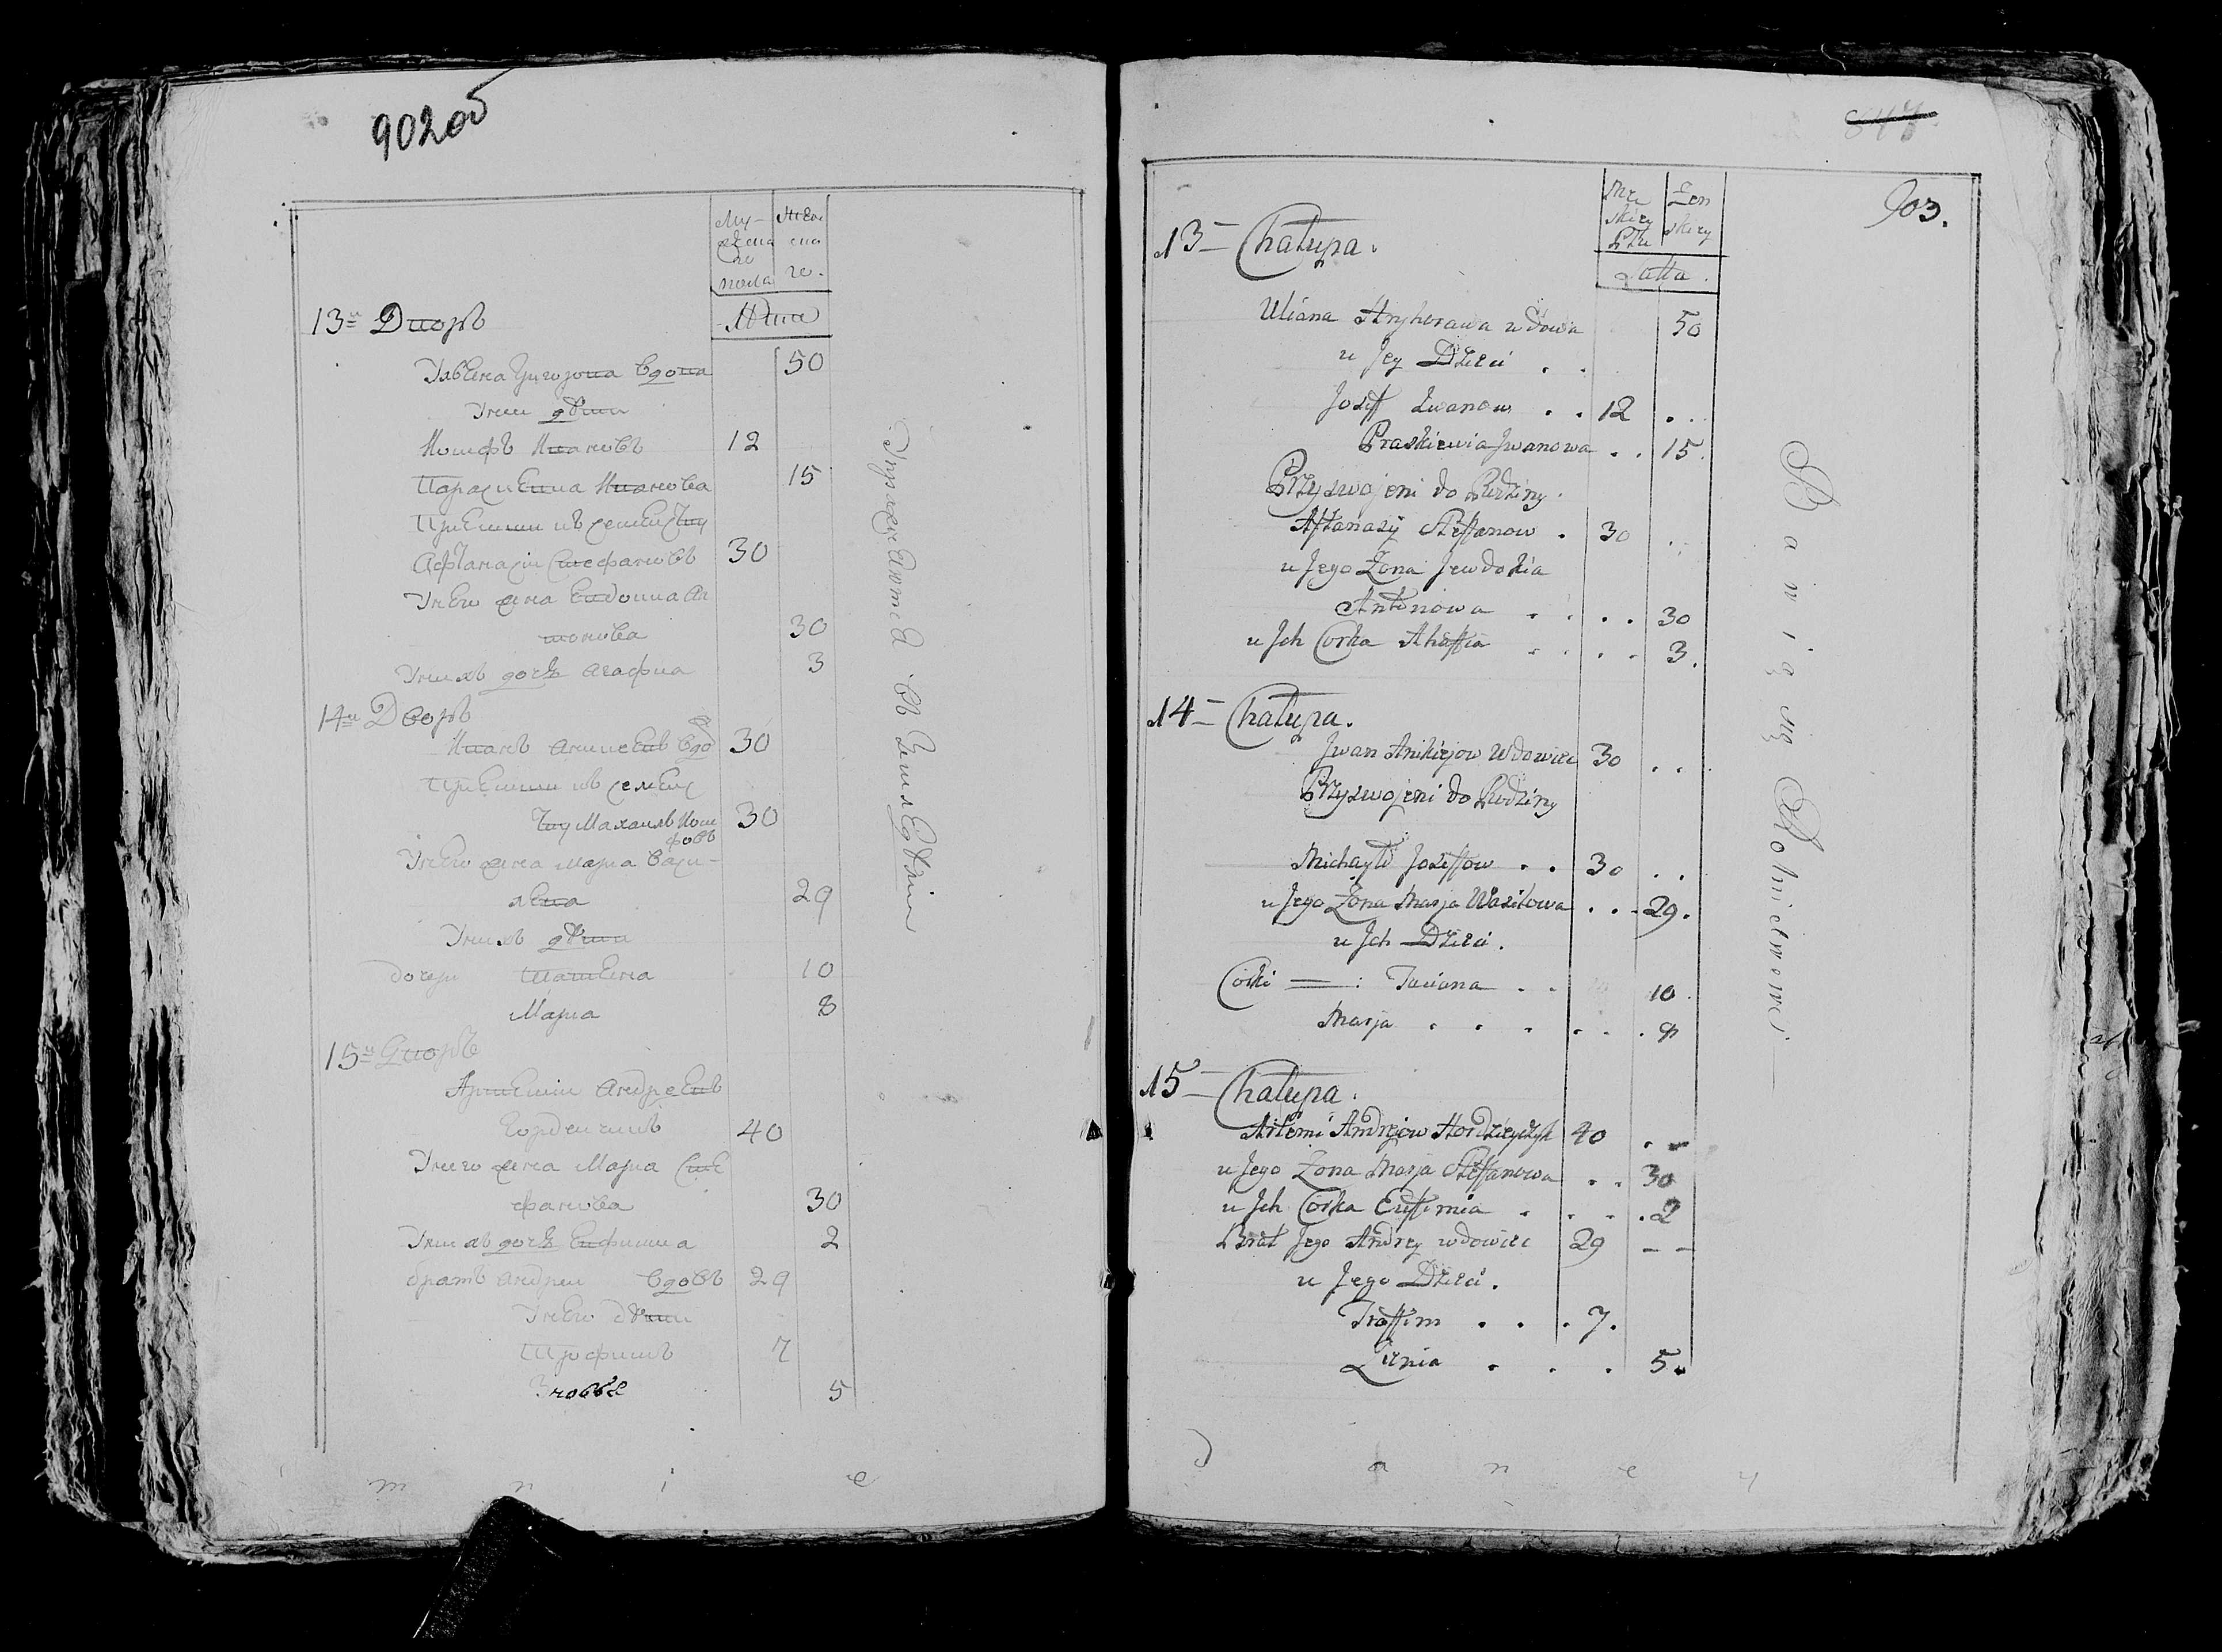 902об
Му-
жеска
го
пола
Жен
ска
го.
Лѣта
13й Дворъ
Ульяна Григорова вдова 50
У неи дѣти
Иосифъ Ивановъ 12
Параскевиа Иванова 15
Приемши въ семейству
Афтанасіи Стефановъ 30
У него жена Евдокиа Ан
тонова 30
У нихъ дочь Агафиа 3
14й Дворъ
Иванъ Аникеевъ вдо 30
Приемши въ семейс
тву Михаилъ Иоси
фовъ 30
У него жена Мариа Васи-
лева 29
У нихъ дѣти
дочери Татиена 10
Мариа 8
15й Дворъ
Артемии Андреевъ
Гордеичикъ 40
У него жена Мариа Сте
фанова 30
У нихъ дочь Евфимиа 2
братъ Андреи вдовъ 29
У него дѣти
Трофимъ 7
Зновья 5
Упражняется въ Земледѣліи
m n i e
847
903.
Mę
skiey
Płci
Żen
skiey
Latta.
13 - Chałupa.
Uliana Hryhorawa wdowa 50
u Jey Dzieci . .
Jozeff Iwanow . . 12 . .
Praskiewia Jwanowa . . 15.
Przyswojeni do Rodziny.
Aftanazy Steffanow . 30 . .
u Jego Żona Jewdokia
Antonowa . . . . 30
u Jch Corka Ahaffia . . . . 3.
14 - Chałupa.
Jwan Anikiejow Wdowiec 30 . .
Przyswojeni do Rodziny
Michayło Jozeffow . . 30 . .
u Jego Żona Marja Wasilowa . . . 29.
u Jch Dzieci.
Corki = : Taciana . . 10.
Marja . . . . . . 8
15 - Chałupa.
Artemi Andrejow Hordzieyczyk 40 . -
u Jego Żona Marja Steffanowa . . 30
u Jch Corka Eufimia . . . . 2
Brat Jego Andrey wdowiec 29 - -
u Jego Dzieci.
Traffim . . . 7.
Zienia . . . 5.
Bawią się Rolnictwem
d a n e y